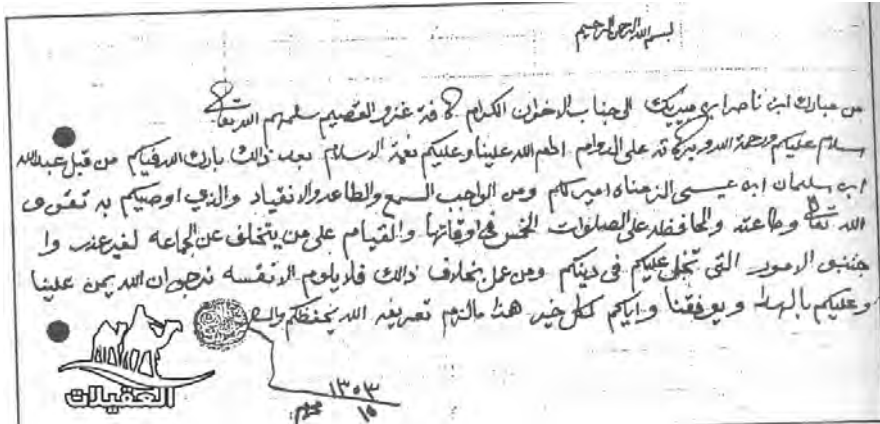 بسم الله الرحمن الرحيم
من مبارك ابن ناصر ابن مبيريك الى جناب الاخوان الكرام كافة غزو القصيم سلمهم الله تعالى
سلام عليكم ورحمة الله وبركاته على الدوام ادام الله علينا وعليكم نعمة الاسلام بعد ذالك بارك الله فيكم من قبل عبدالله
ابن سليمان ابن عيسى الزمناه امير لكم ومن الواجب السمع والطاعه والانقياد والذي اوصيكم به تقوى
الله تعالى وطاعته والمحافظه على الصلوات الخمس في اوقاتها والقيام على من يتخلف عن الجماعه لغير عذر وا
جتنبو الامور التي تخل عليكم في دينكم ومن عمل بخلاف ذالك فلا يلوم الا نفسه نرجو ان الله يمن علينا
وعليكم بالهدا ويوفقنا واياكم لكل خير هذا مالزم تعريفه الله يحفظكم والسلام
١٣٥٣
١٥ محرم
العقيلات